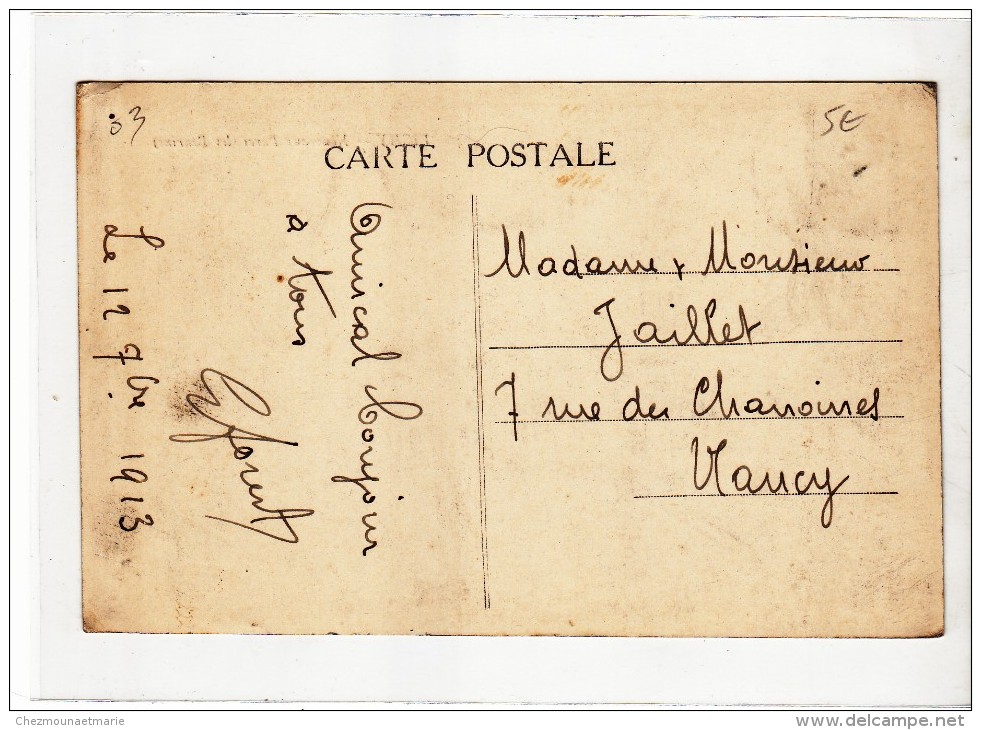 03
5€
CARTE POSTALE
Amical bonjour
a tous
Forest
Le 12 7bre 1913
Madame & Monsieur
Jaillet
7 rue des Chanoines
Nancy
Chezmounaetmarie
www.delcampe.net